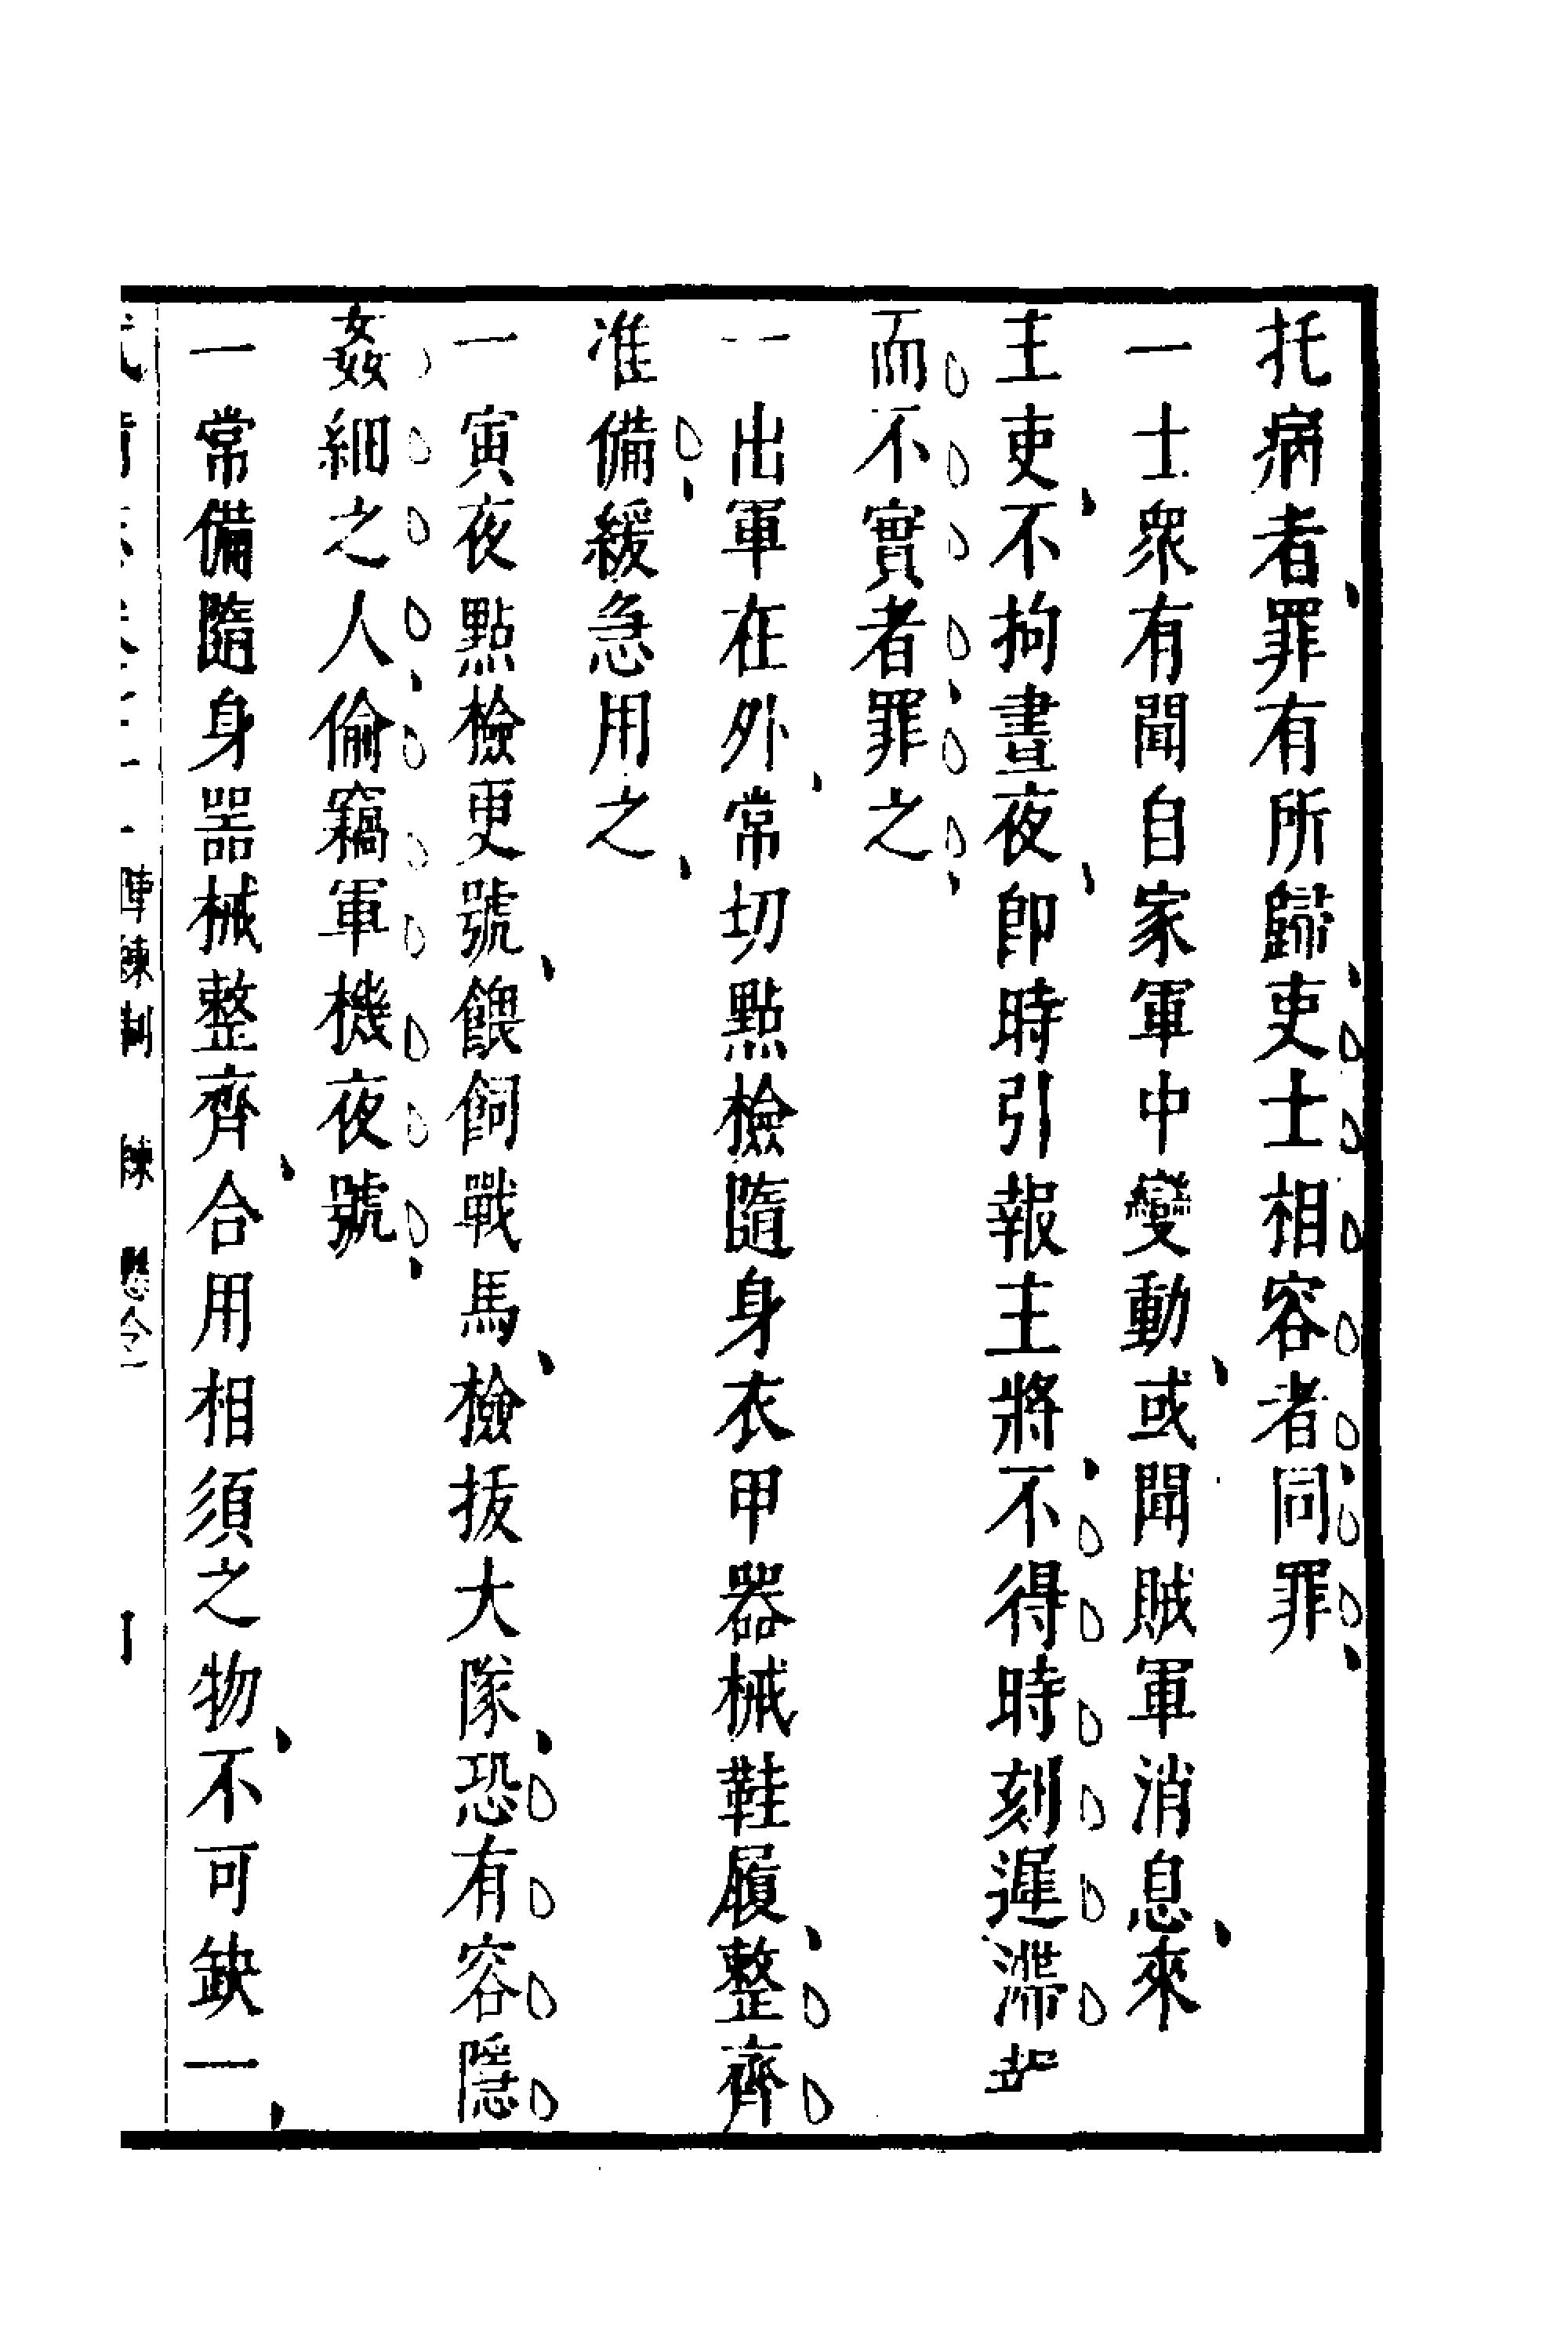 托病者罪有所歸吏士相容者同罪
一士衆有聞自家軍中變動或聞賊軍消息來
主吏不拘晝夜即時引報主將不得時刻遲滯
而不實者罪之
一出軍在外常切點檢隨身衣甲器械鞋履整齊
准備緩急用之
一寅夜點檢更號餵飼戰馬檢拔大隊恐有容隱
姦細之人偷竊軍機夜號
一常備隨身器械整齊合用相須之物不可缺一
陣練制 練 令一